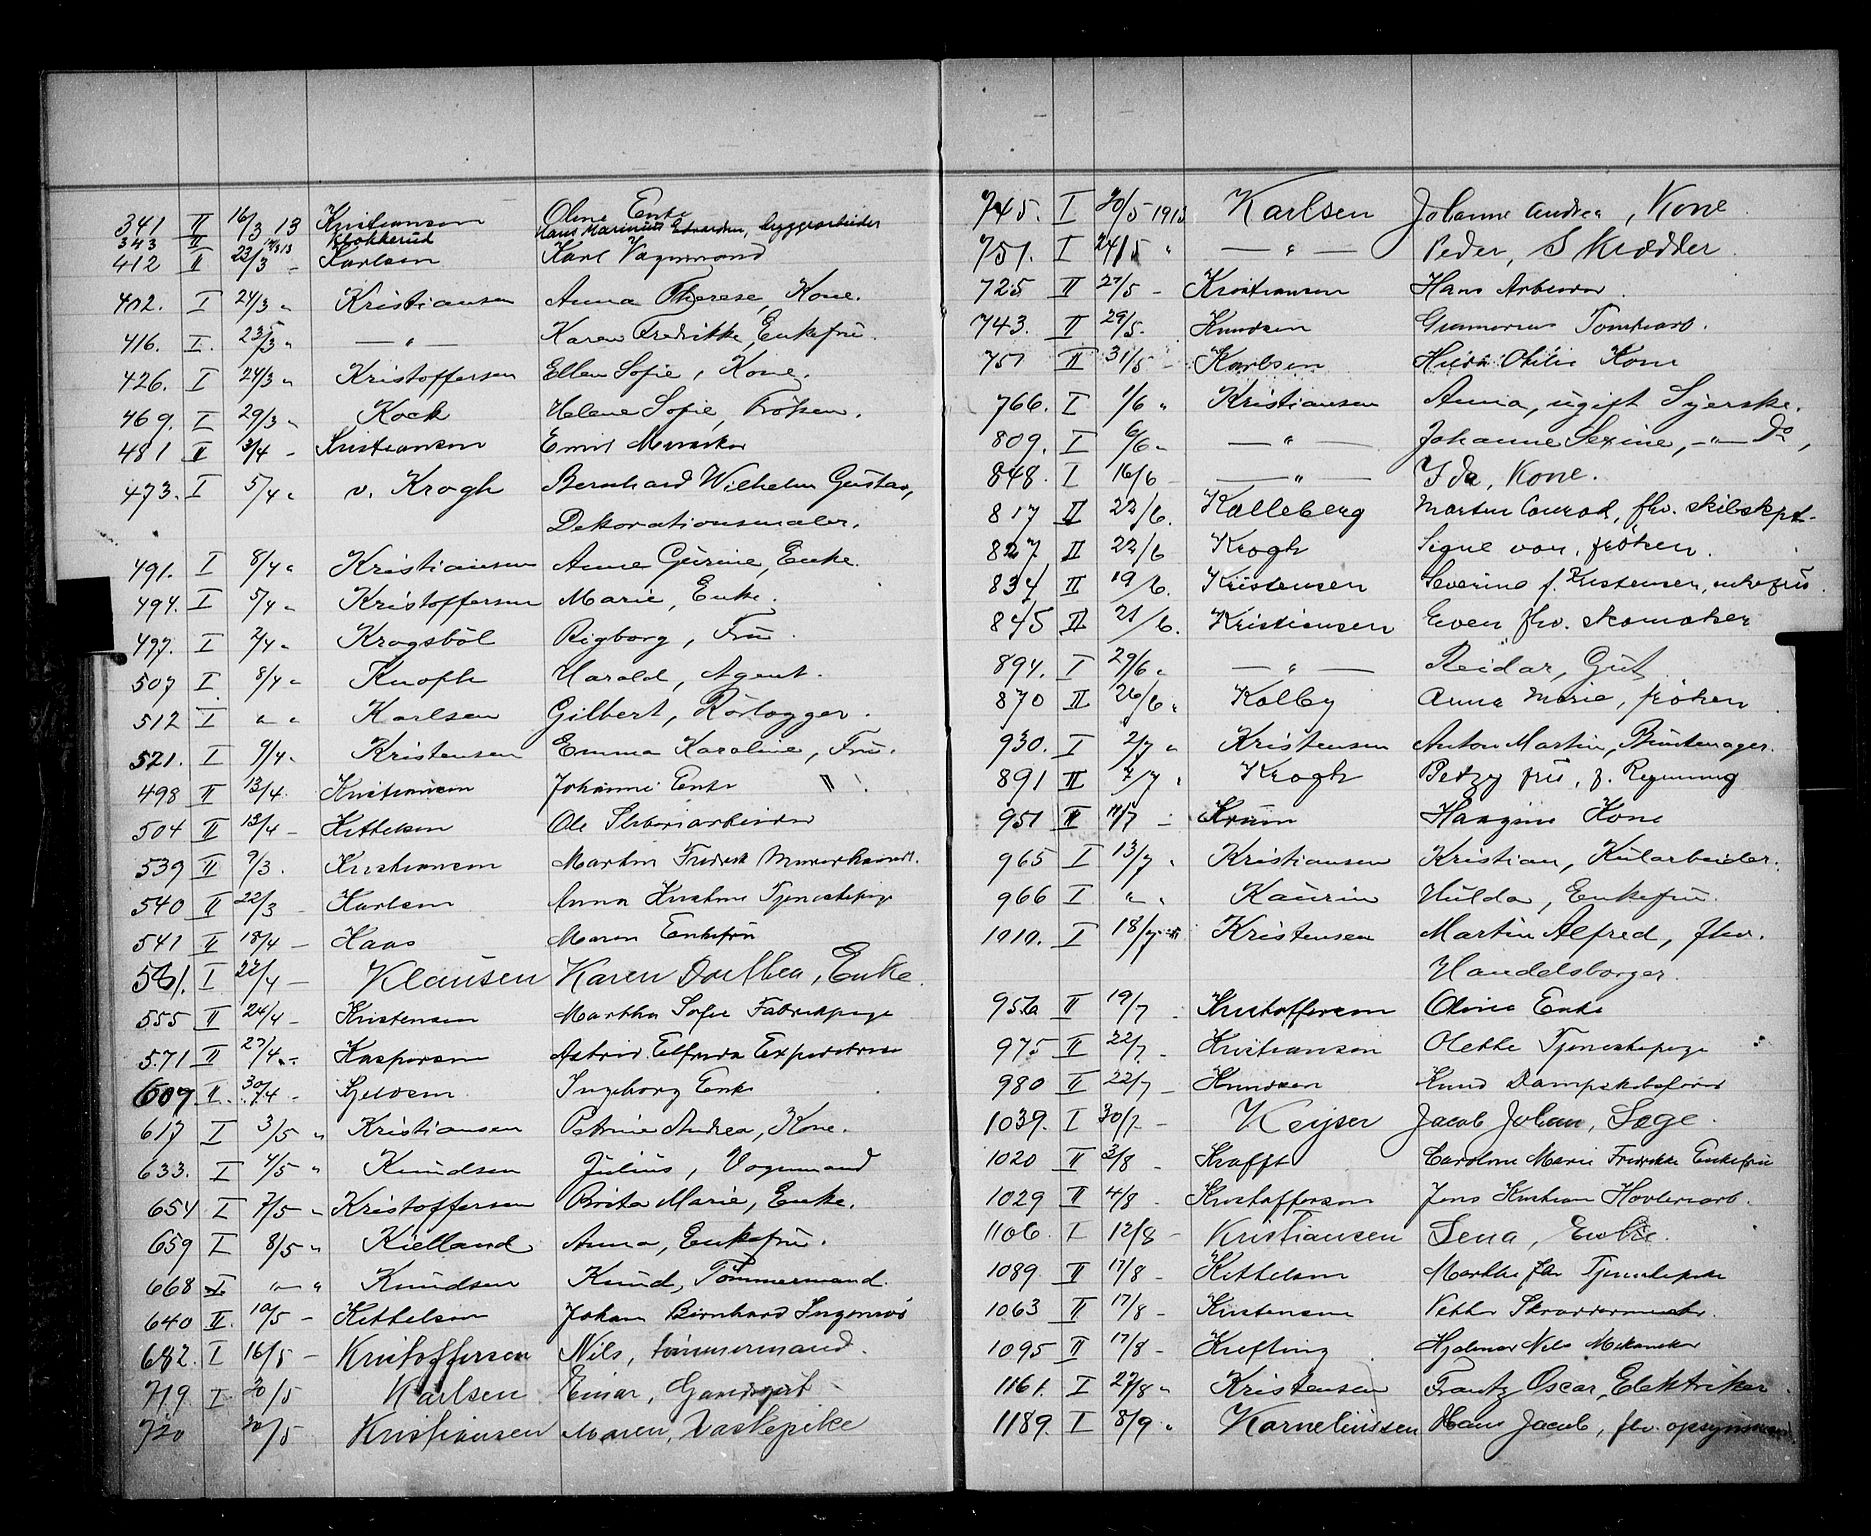 341 II 16/3 13 Kristiansen Oline Enke
343 II 14/3 13 Klokkerud Hans Marinius Edvardsen, bryggearbeider
412 II 22/3 - Karlsen Karl Vognmand
402. I 24/3 " Kristiansen Anna Therese, Kone.
416. I. 23/3 " — " — Karen Fredrikke, Enkefru.
426. I 24/3 " Kristoffersen Ellen Sofie, Kone.
469. I 29/3 " Kock Helene Sofie, Frøken.
481 II 3/4 - Kristiansen Emil
473. I 5/4 " v. Krogh Bernhard Wilhelm Gustav,
Dekorationsmaler.
491. I 8/4 " Kristiansen Anne Gurine, Enke.
494. I 5/4 " Kristoffersen Marie, Enke.
497. I 2/4 " Krogsböl Rigborg, Fru.
507 I 8/4 " Knoph Harald, Agent.
512 I " " Karlsen Gilbert, Rörlægger.
521. I 9/4 " Kristensen Emma Karoline, Fru.
498 II 13/4. Kristiansen Johanne Enke II
504 II 13/4 - Kittelsen Ole
539 II 9/3. Kristiansen Martin Fredrik
540 II 22/3 - Karlsen Anna Kristine Tjenestepige
541 II 18/4 - Kaas Maren Enkefru
561. I 22/4 - Klausen Karen Dorthea, Enke.
555 II 24/4 - Kristensen Martha Sofie Fabrikpige
571 II 27/4 - Kaspersen Astrid Elfrida
609 II 30/4 Ingeborg Enke
617 I 3/5 " Kristiansen Petrine Andrea, Kone.
633. I 4/5 " Knudsen Julius, Vognmand
654 I 7/5 " Kristoffersen Brita Marie, Enke.
659 I 8/5 " Kielland Anna, Enkefru.
668 I " " Knudsen Knud, Tømmermand.
640 II. 10/5 - Kittelsen Johan Bernhard Ingeniør
682. I 16/5 - Kristoffersen Nils, tömmermand.
719. I 20/5 Karlsen Einar,
720 20/5 Kristiansen Maren, Vaskepike
745. I 20/5 1913 Karlsen Johanne Andrea, Kone.
751. I 24/5 " — " — Peder, Skrædder.
725 II 27/5 - Kristiansen Hans Arbeider.
743. II 29/5. Knudsen Gunnerius Tomtearb.
751 II 31/5 - Karlsen Hilda Otilie Kone
766. I 1/6 " Kristiansen Anna, ugift Syerske.
809. I 6/6 " — " — Johanne Sexine, — " — Do,
848. I 16/6 — " — Ida, Kone.
817 II 22/6. Kalleberg Martin Conrad, fhv. skibskpt.
827 II 22/6 Krogh Signe von, frøken.
834 II 19/6. Kristensen Severine f. Kristensen, enkefru.
845 II 21/6. Kristiansen Even fhv. skomaker
894. I 29/6 " — " — Reidar, Gut
870 II 26/6 " Kalby Anna Marie, frøken
930. I 2/7 " Kristensen Anton Martin, Buntmager.
891 II 7/7 " Krogh Betzy fru, f.
951 II 11/7 - Haagine Kone
965 I 13/7 " Kristiansen Kristian, Kularbeider.
966 I " " Kaurin Hulda, Enkefru.
1010. I 18/7 Kristensen Martin Alfred, fhv.
Handelsborger.
956 II 19/7 . Kristoffersen Oline Enke
975 II 22/7 - Kristiansen Olette Tjenestepige
980 II 22/7 - Knudsen Knud Dampskibsfører
1039. I 30/7 - Keyser Jacob Johan, Læge.
1020 II 3/8 - Krafft Caroline Marie Fredrikke Enkefru
1029 II 4/8 - Kristoffersen Jens Kristian Høvleriarb.
1106. I 12/8 - Kristiansen Lena,
1089. II 17/8 - Kittelsen Marthe fhv Tjenestepike
1063 II 17/8 - Kristensen Petter Skræddermester.
1095 II 17/8 - Krefting Hjalmar Nils Mekaniker
1161. I 27/8 " Kristensen Frantz Oscar, Elektriker.
1189. I 8/9 " Korneliussen Hans Jacob, fhv. opsynsmand.